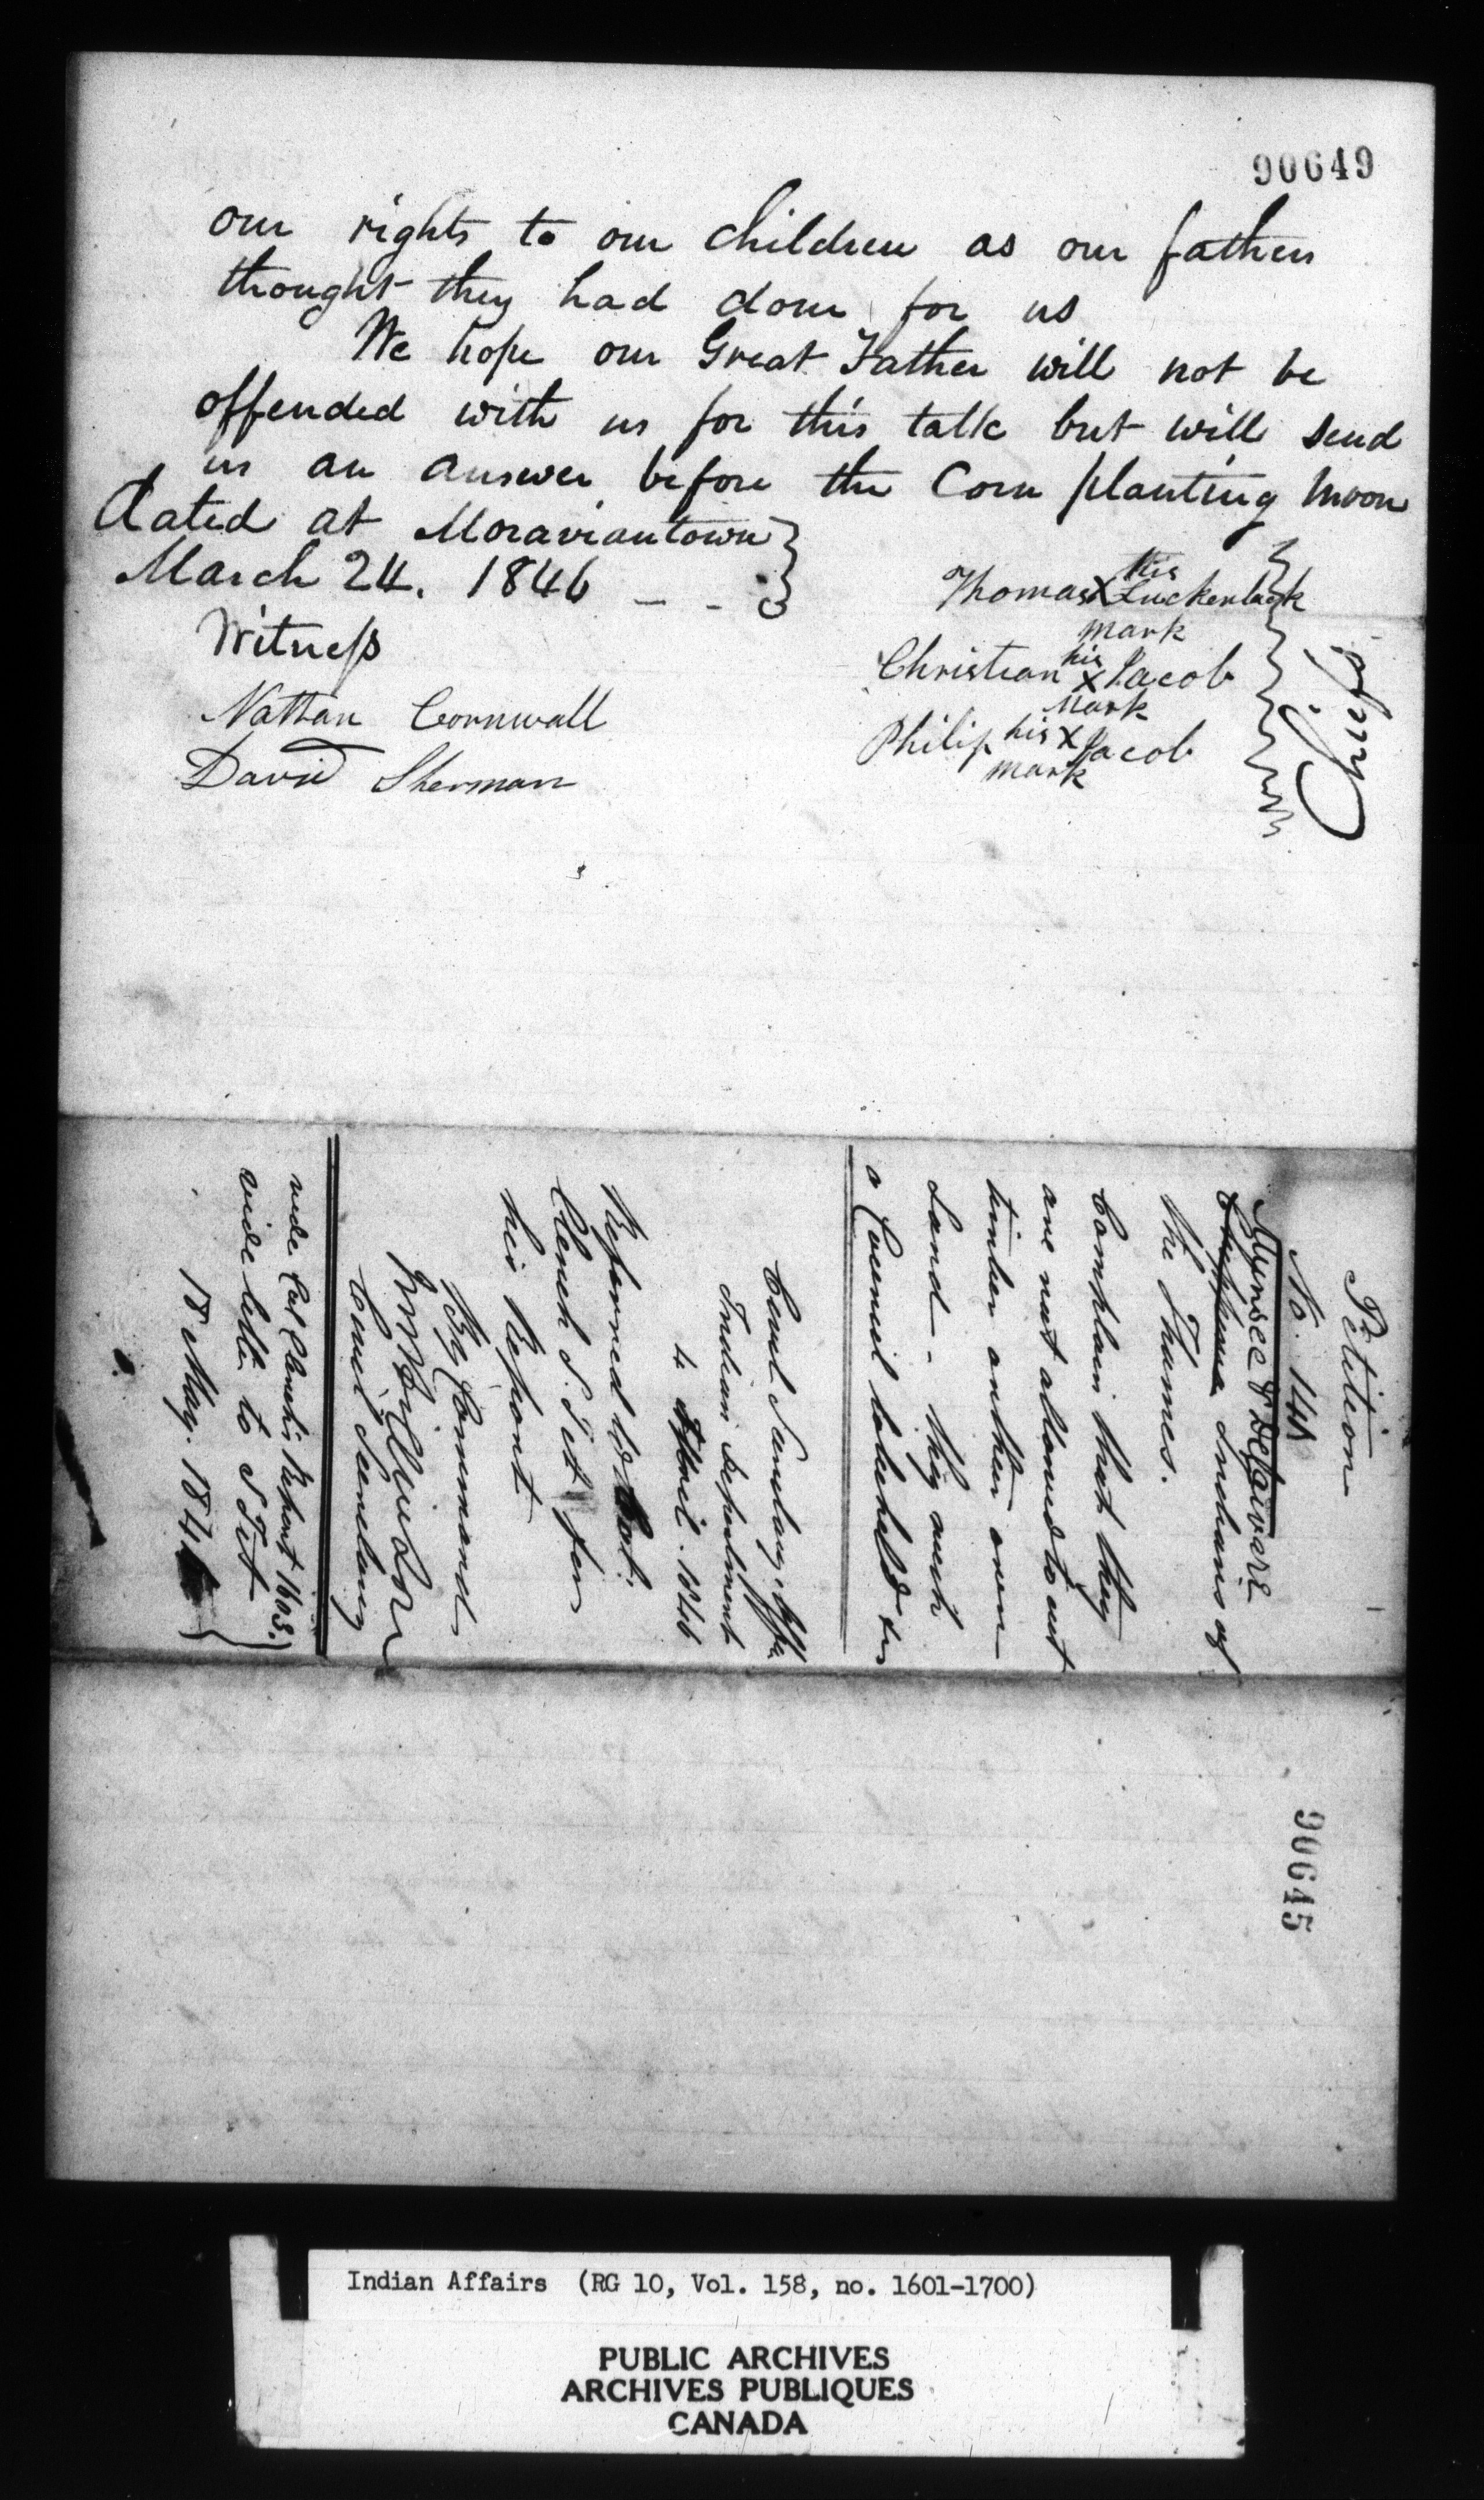 90649
our rights to our children as our fathers
thought they had done for us
We hope our Great Father will not be
offended with us for this talk but will send
us an answer before the Corn planting moon
Dated at Moraviantown }
March 24. 1846 — - }
Witness
Nathan Cornwall
David Sherman
his
Thomas X Luckenback
mark
his
Christian X Jacob
mark
Philip his X Jacob
mark
Chiefs
Petition
No. 141
Munsee & Delaware
Indians of
the Thames.
Complain that they
are not allowed to cut
timber on their own
Land - They wish
a Council to be held &c
Civil Secretary's Office
Indian Department
4 April. 1846
Referred to Col.
Clench S. I. t for
his Report
By Command
Civil Secretary
vide Col Clench's Report 1603.
vide letter to S I t
18 May. 1846
90645
Indian Affairs (RG 10, Vol. 158, no. 1601-1700)
PUBLIC ARCHIVES
ARCHIVES PUBLIQUES
CANADA